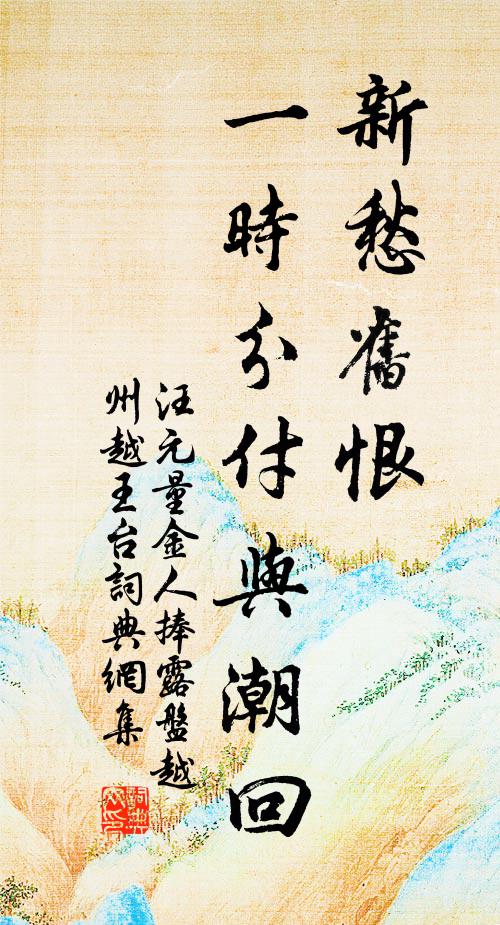 新愁舊恨
一時分付與潮回
汪元量金人捧露盤越
州越王台詞典網集